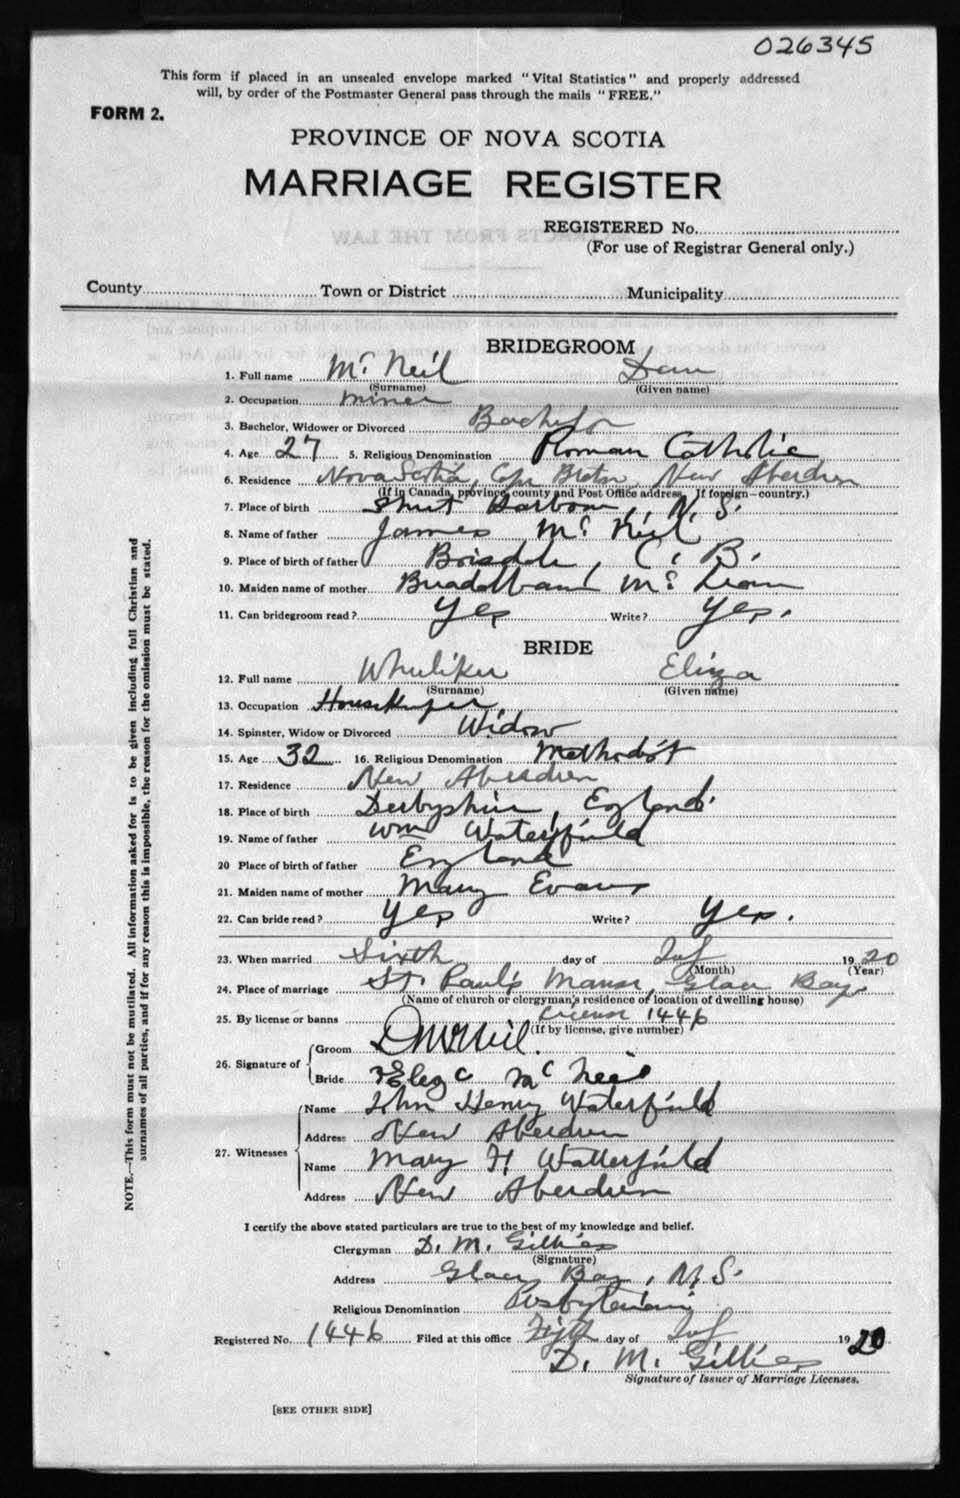 026345
This form if placed in an unsealed envelope marked "Vital Statistics" and properly addressed
will, by order of the Postmaster General pass through the mails "FREE."
FORM 2.
PROVINCE OF NOVA SCOTIA
MARRIAGE REGISTER
REGISTERED No.
(For use of Registrar General only.)
County Town or District Municipality
BRIDEGROOM
1. Full name Mc Neil Dan
(Surname) (Given name)
2. Occupation miner
3. Bachelor, Widower or Divorced Bachelor
4. Age 27 5. Religious Denomination Roman Catholic
6. Residence Nova Scotia, Cape Breton, New Aberdeen
(If in Canada, province, county and Post Office address. If foreign—country.)
7. Place of birth Harbour, N. S.
8. Name of father James Mc Neil
9. Place of birth of father C. B.
10. Maiden name of mother Mc
11. Can bridegroom read? Yes Write? Yes.
BRIDE
12. Full name Eliza
(Surname) (Given name)
13. Occupation Housekeeper
14. Spinster, Widow or Divorced Widow
15. Age 32 16. Religious Denomination Methodist
17. Residence New Aberdeen
18. Place of birth Derbyshire, England
19. Name of father Wm Waterfield
20 Place of birth of father England
21. Maiden name of mother Mary Evans
22. Can bride read? Yes Write? Yes.
23. When married Sixth day of 1920
(Month) (Year)
24. Place of marriage St. Paul's Manse, Glace Bay
(Name of church or clergyman's residence of location of dwelling house)
25. By license or banns License 1446
(If by license, give number)
26. Signature of Groom D McNeil.
Bride Mc Neil
27. Witnesses Name John Henry Waterfield
Address New Aberdeen
Name Mary H Watterfield
Address New Aberdeen
I certify the above stated particulars are true to the best of my knowledge and belief.
Clergyman D. M. Gillies
(Signature)
Address Glace Bay, N. S.
Religious Denomination Presbyterian
Registered No. 1446 Filed at this office day of 1920
D. M. Gillies
Signature of Issuer of Marriage Licenses.
[SEE OTHER SIDE]
NOTE.—This form must not be mutilated. All information asked for is to be given including full Christian and
surnames of all parties, and if for any reason this is impossible, the reason for the omission must be stated.